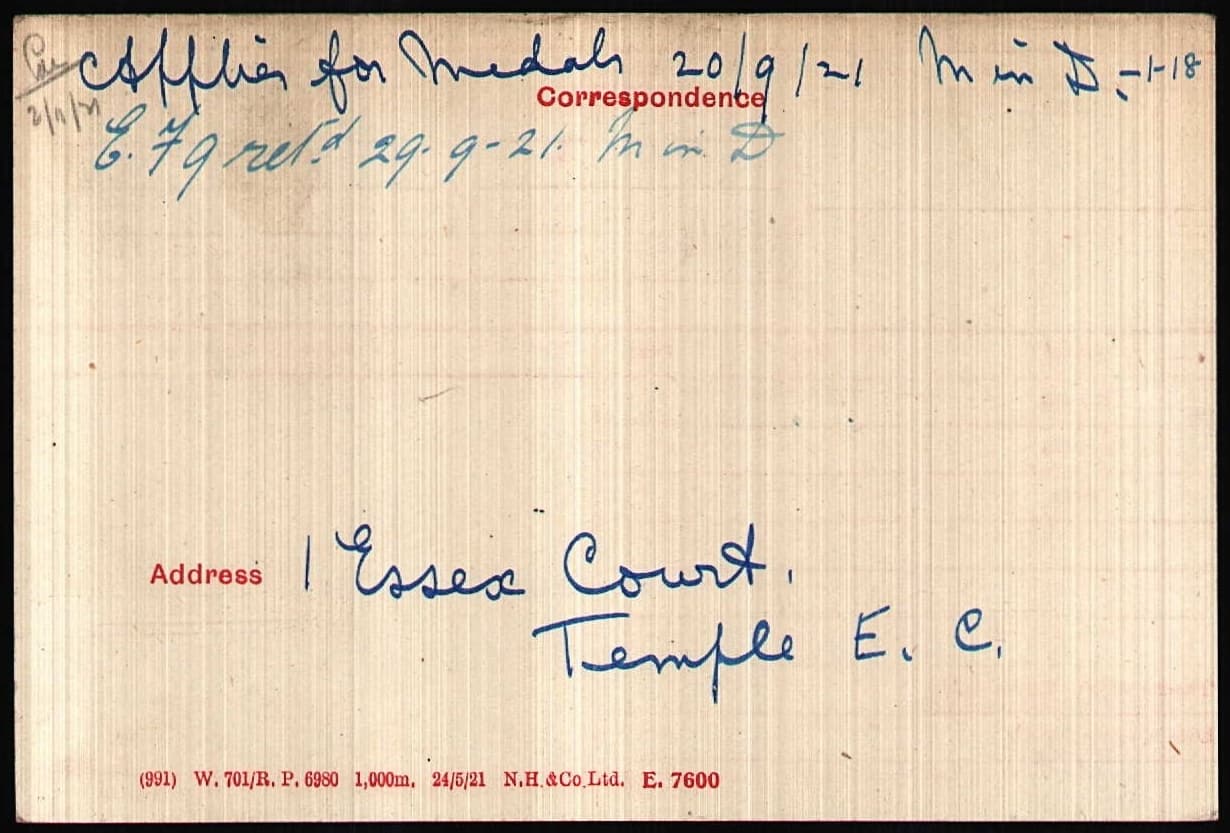 Applies for Medals 20/9/21 M in D. -1-18
Correspondence
2/11/21
E. F 9 ret.d 29-9-21. M in D
Address 1 Essex Court.
Temple E. C.
(991) W. 701/R. P. 6980 1,000m. 24/5/21 N.H.&Co.Ltd. E. 7600